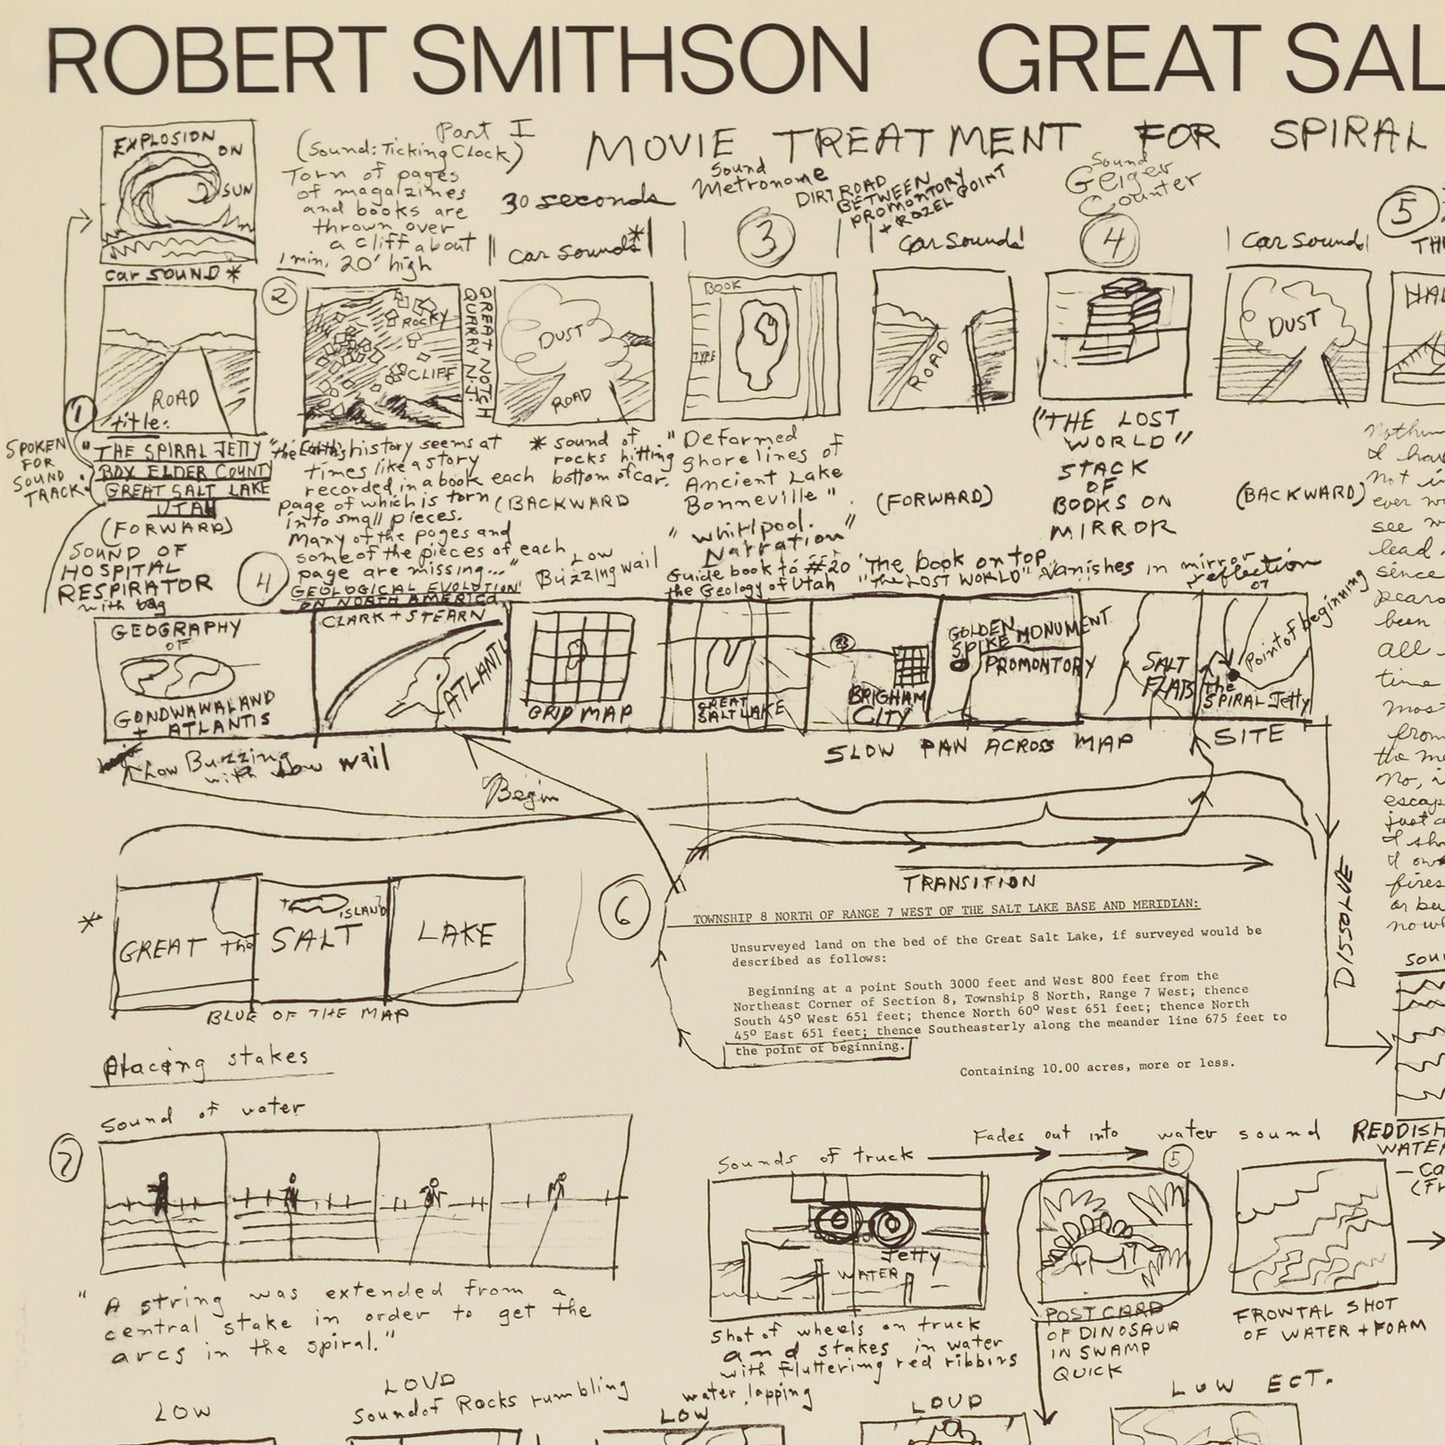 ROBERT SMITHSON GREAT SAL
Part I
MOVIE TREATMENT FOR SPIRAL
EXPLOSION
ON
SUN
(Sound: Ticking Clock)
Torn of pages
of magalzines
and books are
thrown over
a cliff about
1 min. 20' high
30 seconds
Sound
Metronome
DIRT ROAD
BETWEEN
PROMONTORY
+ ROZEL POINT
Sound
Geiger
Counter
5
TH
car SOUND *
car sounds *
3
car sounds
4
car sound
2
ROCKY
CLIFF
GREAT NOTCH
QUARRY N.J.
DUST
ROAD
BOOK
TYPE
ROAD
DUST
ROAD
1
title:
SPOKEN
FOR
SOUND
TRACK:
"THE SPIRAL JETTY"
BOX ELDER COUNTY
GREAT SALT LAKE
UTAH
(FORWARD)
SOUND OF
HOSPITAL
RESPIRATOR
with bag
the Earth's history seems at
times like a story
recorded in a book each
page of which is torn
into small pieces.
Many of the pages and
some of the pieces of each
page are missing..."
GEOLOGICAL EVOLUTION
ON NORTH AMERICA
CLARK + STEARN
* sound of
rocks hitting
bottom of car.
(BACKWARD
"Deformed
shorelines of
Ancient Lake
Bonneville".
"whirlpool.
Narration"
Guide book to #20
the Geology of Utah
(FORWARD)
("THE LOST
WORLD"
STACK
OF
BOOKS ON
MIRROR
(BACKWARD)
"The book on top
"The LOST WORLD" vanishes in mirror
reflection
4
Low
Buzzing wail
GEOGRAPHY
OF
GONDWAWALAND
+ ATLANTIS
ATLANTI
GRID MAP
GREAT
SALT LAKE
BRIGHAM
CITY
GOLDEN
SPIKE MONUMENT
PROMONTORY
SALT
FLATS
Point of beginning
The
SPIRAL Jetty
Low Buzzing
with low wail
SLOW PAN ACROSS MAP
SITE
Begin
TRANSITION
DISSOLVE
*
GREAT the
ISLAND
SALT
LAKE
BLUE OF THE MAP
6
TOWNSHIP 8 NORTH OF RANGE 7 WEST OF THE SALT LAKE BASE AND MERIDIAN:
Unsurveyed land on the bed of the Great Salt Lake, if surveyed would be
described as follows:
Beginning at a point South 3000 feet and West 800 feet from the
Northeast Corner of Section 8, Township 8 North, Range 7 West; thence
South 45° West 651 feet; thence North 60° West 651 feet; thence North
45° East 651 feet; thence Southeasterly along the meander line 675 feet to
the point of beginning.
Containing 10.00 acres, more or less.
Placing stakes
Sound of water
7
"A string was extended from a
central stake in order to get the
arcs in the spiral."
Sounds of truck
Fades out into water sound
5
Jetty
WATER
Shot of wheels on truck
and stakes in water
with fluttering red ribbons
POST CARD
OF DINOSAUR
IN SWAMP
QUICK
FRONTAL SHOT
OF WATER + FOAM
REDDISH
WATER
LOW
LOUD
Sound of Rocks rumbling
water lapping
LOW
LOUD
LOW ECT.